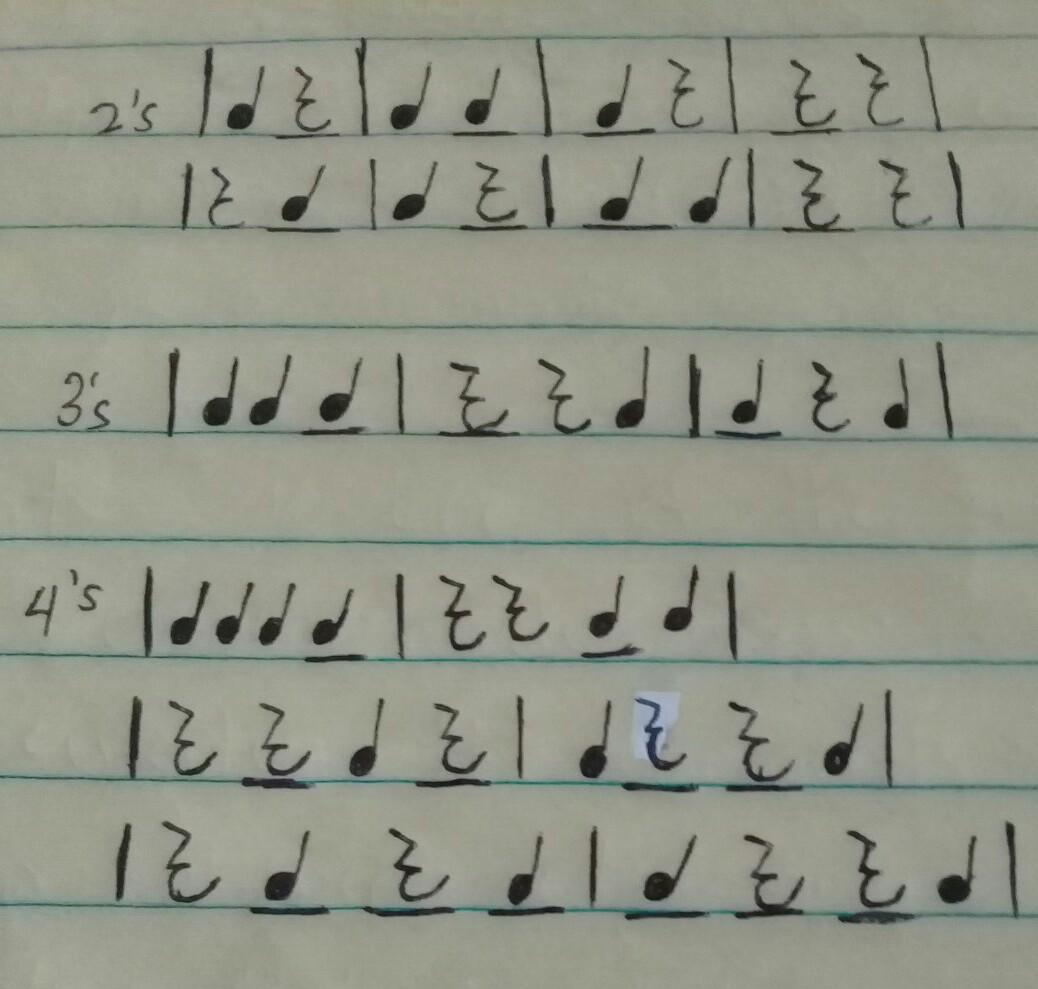 2's
3's
4's